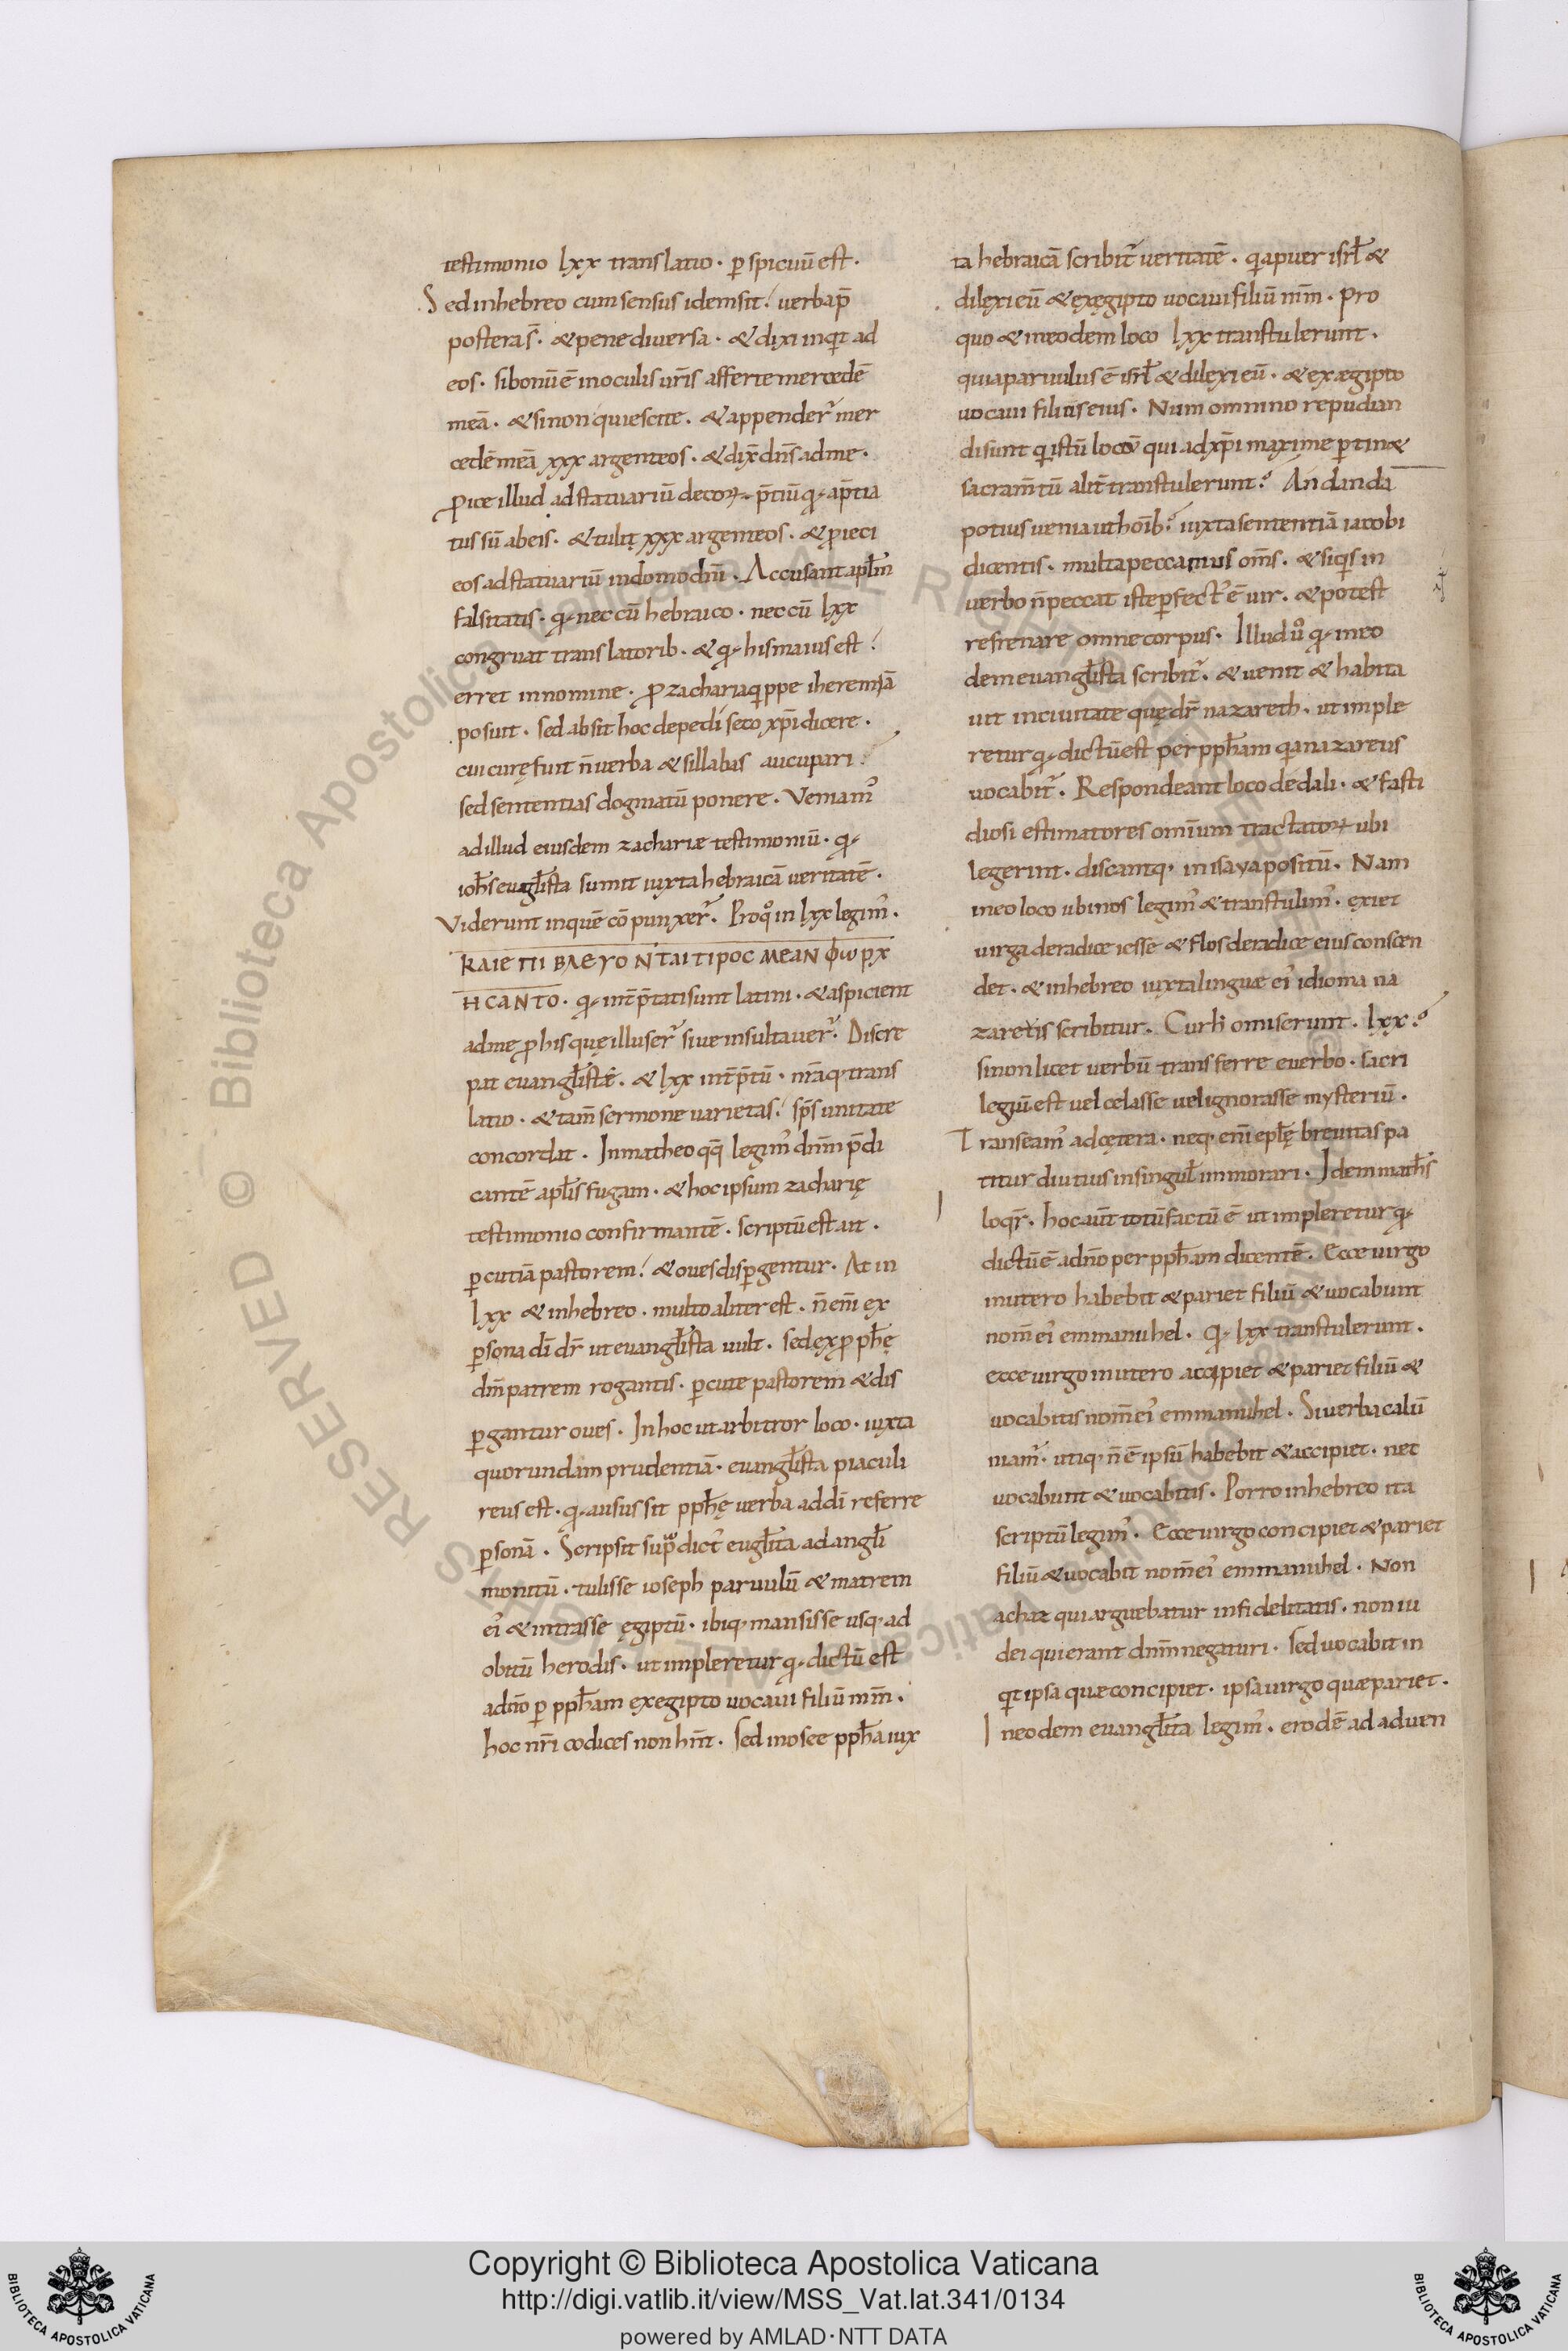 testimonio lxx translatio · ꝑspicuū est ·
Sed in hebreo cum sensus idem sit / uerba p̄
postera s̄ · & pene diuersa · & dixi inqͥt ad
eos · si bonū ē in oculis ur̄is afferte mercedē
meā · & si non quiescite · & appender̄ mer
cedē meā xxx argenteos · & dix̄ dn̄s ad me ·
ꝓice illud ad statuariū decoꝝ p̄tiū qđ ap̄tia
tus sū ab eis · & tuli xxx argenteos · & ꝓieci
eos ad statuariū in domo dn̄i · Accusant apl̄m
falsitatis · qđ nec cū hebraico · nec cū lxx
congruat translatorib · & qđ his maius est /
erret in nomine · ꝓ zacharia qͥppe iheremiā
posuit · sed absit hoc de pediseco xp̄i dicere ·
cui curę fuit n̄ uerba & sillabas aucupari /
sed sententias dogmatū ponere · Veniamꝰ
ad illud eiusdem zachariæ testimoniū · qđ
ioh̄s eugl̄ista sumit iuxta hebraicā ueritatē ·
Viderunt in quē cōpunxer̄ · Proqͦ in lxx legimꝰ ·
ΚΑΙΕΠΙ ΒΛΕΥΟΝΤΑΙ ΤΙΡΟC ΜΕΑΝ ΦωΡΧ
ΗCΑΝΤΟ · qđ int̄p̄tati sunt latini · & aspicient
ad me ꝓ his quę illuser̄ siue insultauer̄ · Discre
pat euangl̄istę · & lxx int̄p̄tū · nr̄aq· trans
latio · & tam̄ sermone uarietas / sp̄s unitate
concordat · In matheo qq̄ legimꝰ dnm̄ p̄di
cantē apl̄is fugam · & hoc ipsum zacharię
testimonio confirmantē · scriptū est ait ·
ꝑcutiā pastorem / & oues disꝑgentur · At in
lxx & in hebreo · multo aliter est · n̄ eni̅ ex
ꝑsona dī dr̄ ut euangl̄ista uult · sed ex ꝓph̄ę
dm̄ patrem rogantis · ꝑcute pastorem & dis
ꝑgantur oues · In hoc ut arbitror loco · iuxta
quorundam prudentiā · euangl̄ista piaculi
reus est · qđ ausus sit pph̄ę uerba ad dī referre
ꝑsonā · Scripsit supͣdict' eugl̄ita ad angl̄i
monitū · tulisse ioseph paruulū & matrem
eiꝰ & intrasse ęgiptū · ibiq· mansisse usq· ad
obitū herodis · ut impleretur qđ dictū est
a dn̄o ꝑ pph̄am ex egipto uocaui filiū mm̄ ·
hoc nr̄i codices non hn̄t · Sed in osee pph̄a iux
ta hebraicā scribit̄ ueritatē · qͥa puer isrl̄ &
dilexi eū & ex ęgipto uocaui filiū mm̄ · pro
quo & in eodem loco lxx transtulerunt ·
quia paruulus ē isrl̄ & dilexi eū · & ex ægipto
uocaui filius eius · Num omnino repudian
di sunt qͥ istū locū qui ad xp̄i maxime ꝑtinæ
sacram̄tū alit̄ transtulerunt? An danda
potius uenia ut hoīb? iuxta sententiā iacobi
dicentis · multa peccamus om̄s · & siqͥs in
uerbo n̄ peccat iste ꝑfect' ē uir · & potest
refrenare omne corpus · Illud uͦ qđ in eo
dem euangl̄ista scribit̄ · & uenit & habita
uit in ciuitate quę dr̄ nazareth · ut imple
retur qđ dictū est per pph̄am qͥa nazareus
uocabit̄ · Respondeant loco dedali · & fasti
diosi estimatores omīum tractatoꝝ ubi
legerint · discantq· in isaya positū · Nam
in eo loco ubi nos legimꝰ & transtulimꝰ · exiet
uirga de radice iesse & flos de radice eius conscen
det · & in hebreo iuxta linguæ eiꝰ idioma na
zareus scribitur · Cur h̄ omiserunt · lxx?
si non licet uerbū transferre e uerbo · sacri
legiū est uel celasse uel ignorasse mysteriū ·
Transeamꝰ ad cętera · neq· eni̅ epl̄ę breuitas pa
titur diutius in singul̄ inmorari · Idem math̄s
loqr̄ · hoc aūt totū factū ē ut impleretur qđ
dictū ē a dn̄o per pph̄am dicentē · Ecce uirgo
in utero habebit & pariet filiū & uocabunt
nom̄ eiꝰ emmanuhel · qđ lxx transtulerunt ·
ecce uirgo in utero accipiet & pariet filiū &
uocabitis nom̄ eiꝰ emmanuhel · Si uerba calū
niamꝰ · utiq· n̄ ē ipsū habebit & accipiet · nec
uocabunt & uocabitis · Porro in hebreo ita
scriptū legimꝰ · Ecce uirgo concipiet & pariet
filiū & uocabit nom̄ eiꝰ emmanuhel · Non
achaz qui arguebatur infidelitatis · non iu
dei qui erant dnm̄ negaturi · sed uocabit in
qͥt ipsa quæ concipiet · ipsa uirgo quæ pariet ·
In eodem euangl̄ita legimꝰ · erodē ad aduen
RESERVED © Biblioteca Apostolica Vaticana ALL RIGHTS
Copyright © Biblioteca Apostolica Vaticana
http://digi.vatlib.it/view/MSS_Vat.lat.341/0134
powered by AMLAD·NTT DATA
BIBLIOTECA APOSTOLICA VATICANA
BIBLIOTECA APOSTOLICA VATICANA